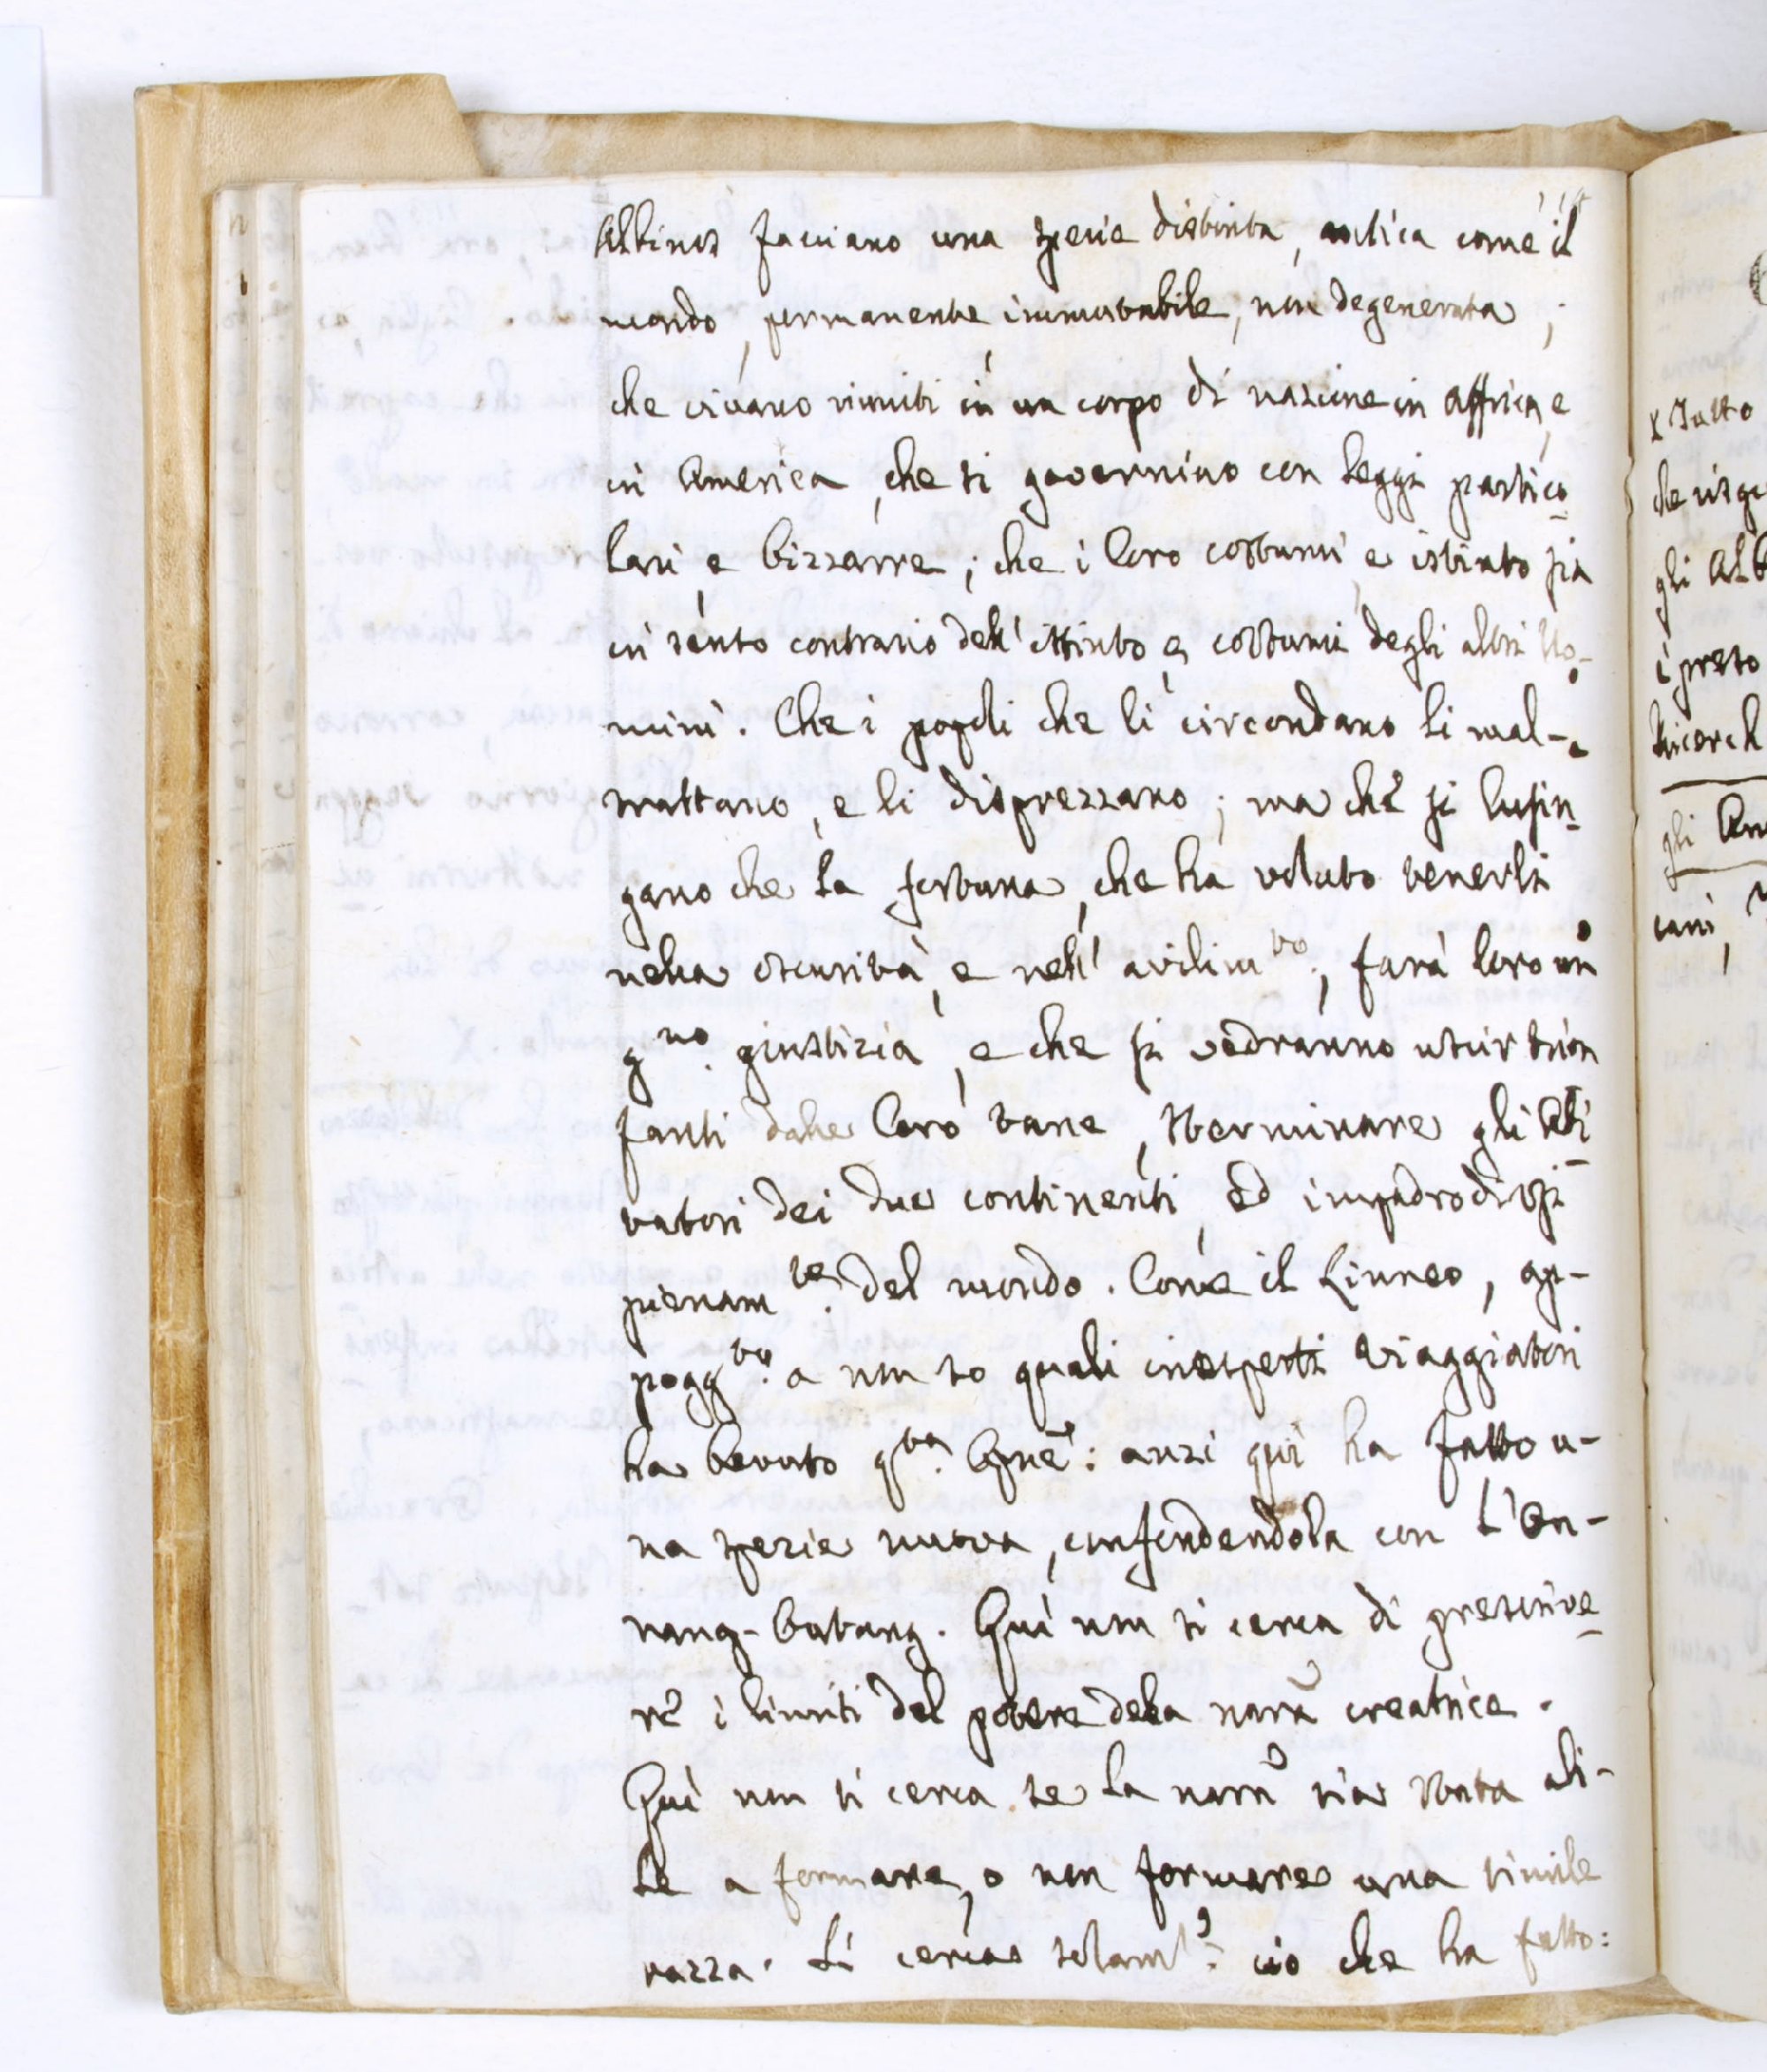 114
Albinos facciano una specie distinta, antica come il
mondo, permanente immutabile, non degenerata;
che vivano riuniti in un corpo di nazione in Affrica, e
in America, che si governino con leggi partico
lari e bizzarre; che i loro costumi, e istinto sia
in senso contrario dell'istinto e costumi degli altri Uo-
mini. Che i popoli che li circondano li mal-
trattano, e li disprezzano; ma che si lusin
gano che la fortuna, che ha voluto tenerli
nella oscurità, e nell'avilimto., farà loro un
gno. giustizia, e che si vedranno uscir trion
fanti dalle loro tane, sterminare gli Colti
vatori dei due continenti, ed impadrodirsi
pienamte. del mondo. Come il Linneo, ap-
poggto. a non so quali inesperti viaggiatori
ha bevuto qta. Opne: anzi qui ha fatto u-
na spezie nuova, confondendola con l'On-
rang-Outang. Quì non si cerca di prescrive
re i limiti del potere della nara creatrice.
Quì non si cerca se la nara sia stata abi-
le a formare, o non formare una simile
razza. Si cerca solamte: ciò che ha fatto:
x Tutto
gli Alb
i
gli Am
cani,